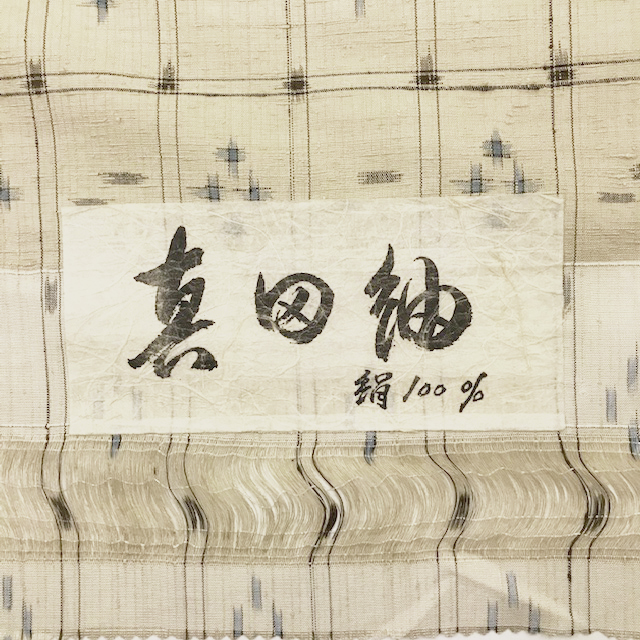 真田紬
絹100%